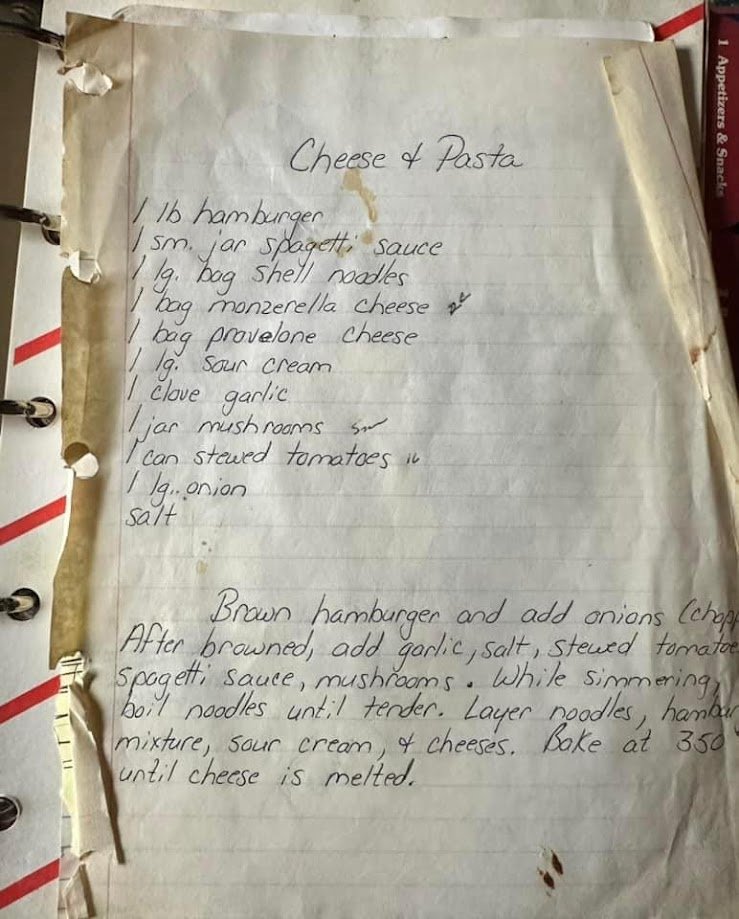 Cheese & Pasta
1 lb hamburger
1 sm. jar spagetti sauce
1 lg. bag shell noodles
1 bag monzerella cheese
1 bag provelone cheese
1 lg. sour cream
1 clove garlic
1 jar mushrooms
1 can stewed tomatoes
1 lg. onion
salt
Brown hamburger and add onions (chop
After browned, add garlic, salt, stewed tomatoe
spagetti sauce, mushrooms. While simmering,
boil noodles until tender. Layer noodles, hambur
mixture, sour cream, & cheeses. Bake at 350
until cheese is melted.
1 Appetizers & Snacks